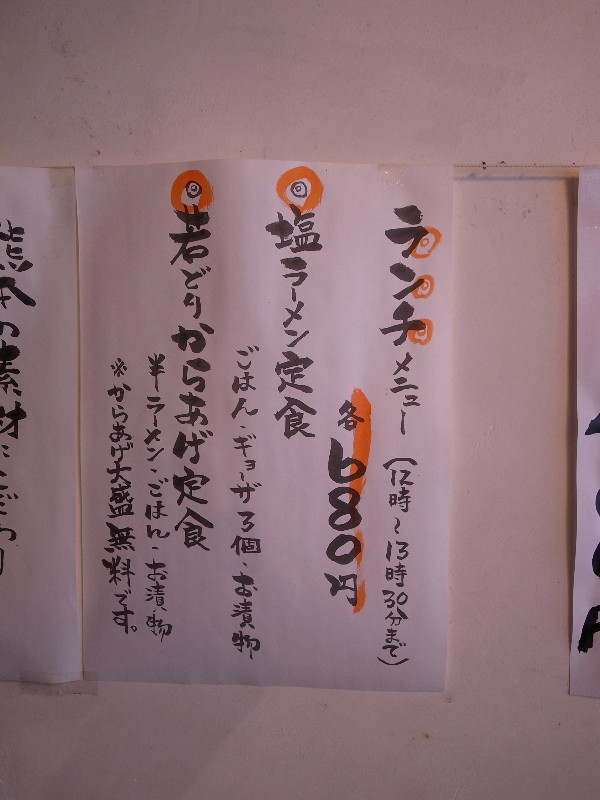 ランチメニュー（12時～13時30分まで）
各680円
塩ラーメン定食
ごはん・ギョーザ3個・お漬物
若どりからあげ定食
半ラーメン・ごはん・お漬物
※からあげ大盛無料です。
熊本の素材にこだわり